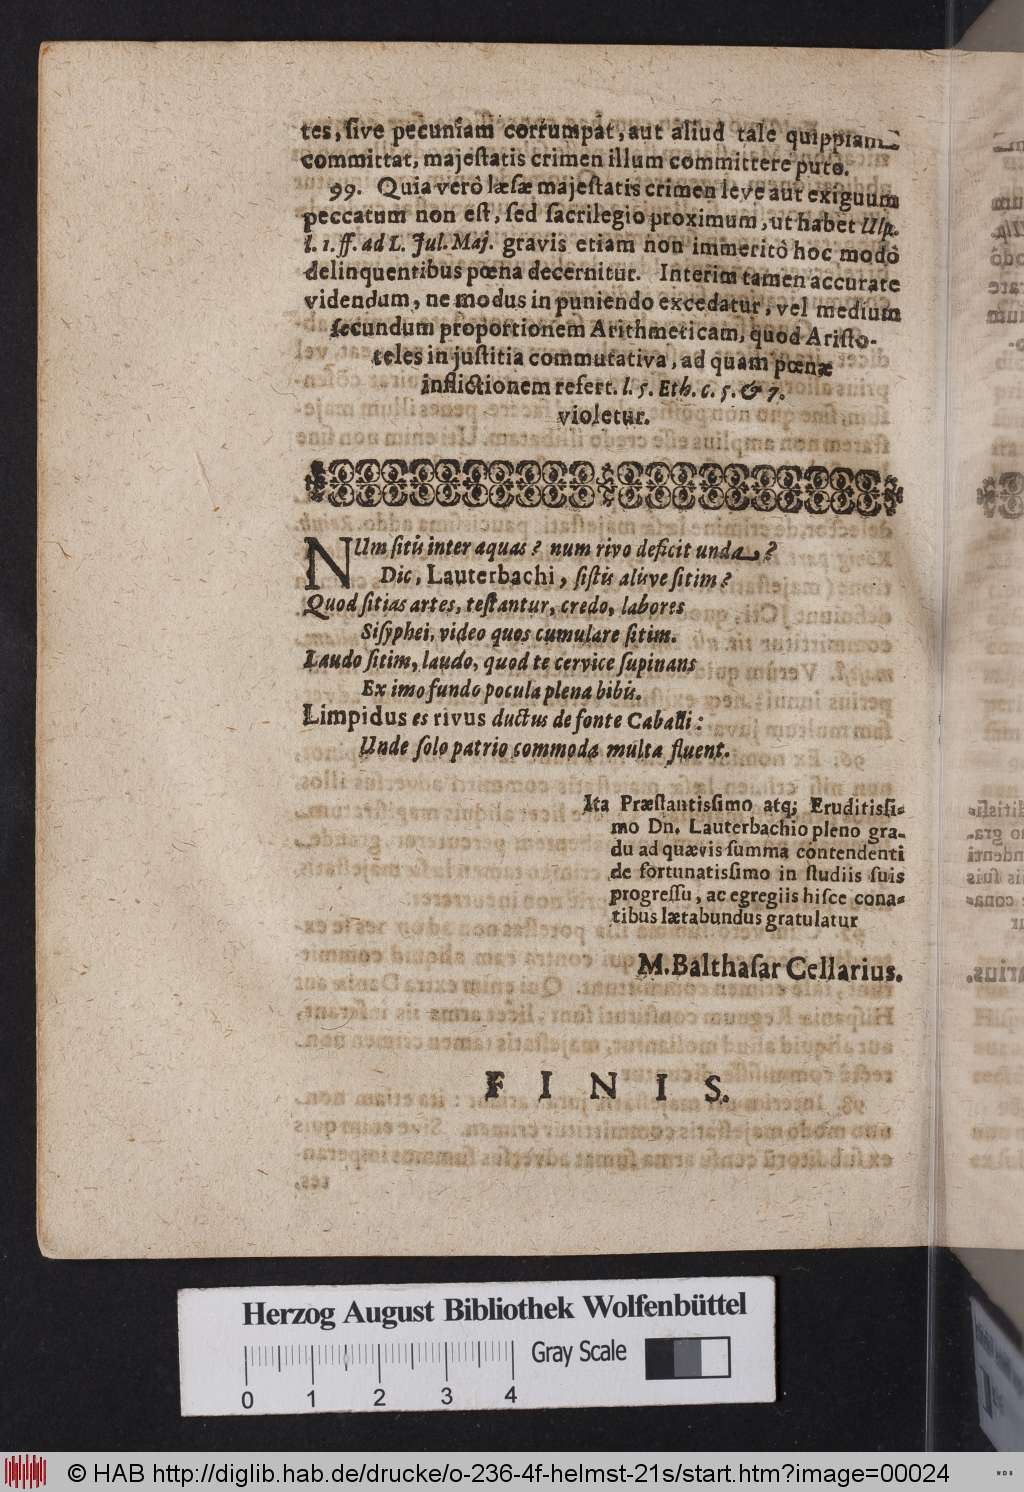 tes, ſive pecuniam corrumpat, aut aliud tale quippiam
committat, majeſtatis crimen illum committere puto.
99. Quia verò læſæ majeſtatis crimen leve aut exiguum
peccatum non eſt, ſed ſacrilegio proximum, ut habet Ulp.
l. 1. ff. ad L. Jul. Maj. gravis etiam non immeritò hoc modò
delinquentibus pœna decernitur. Interim tamen accurate
videndum, ne modus in puniendo excedatur, vel medium
ſecundum proportionem Arithmeticam, quod Ariſto-
teles in juſtitia commutativa, ad quam pœnæ
inflictionem refert. l. 5. Eth. c. 5. & 7.
violetur.
NUm ſitis inter aquas? num rivo deficit unda?
Dic, Lauterbachi, ſiſtis alúve ſitim?
Quod ſitias artes, teſtantur, credo, labores
Siſyphei, video quos cumulare ſitim.
Laudo ſitim, laudo, quod te cervice ſupinans
Ex imo fundo pocula plena bibis.
Limpidus es rivus ductus de fonte Caballi:
Unde ſolo patrio commoda multa fluent.
Ita Præſtantiſſimo atq; Eruditiſſi-
mo Dn. Lauterbachio pleno gra-
du ad quævis ſumma contendenti
de fortunatiſſimo in ſtudiis ſuis
progreſſu, ac egregiis hiſce cona-
tibus lætabundus gratulatur
M. Balthaſar Cellarius.
FINIS.
Herzog August Bibliothek Wolfenbüttel
Gray Scale
0 1 2 3 4
© HAB http://diglib.hab.de/drucke/o-236-4f-helmst-21s/start.htm?image=00024